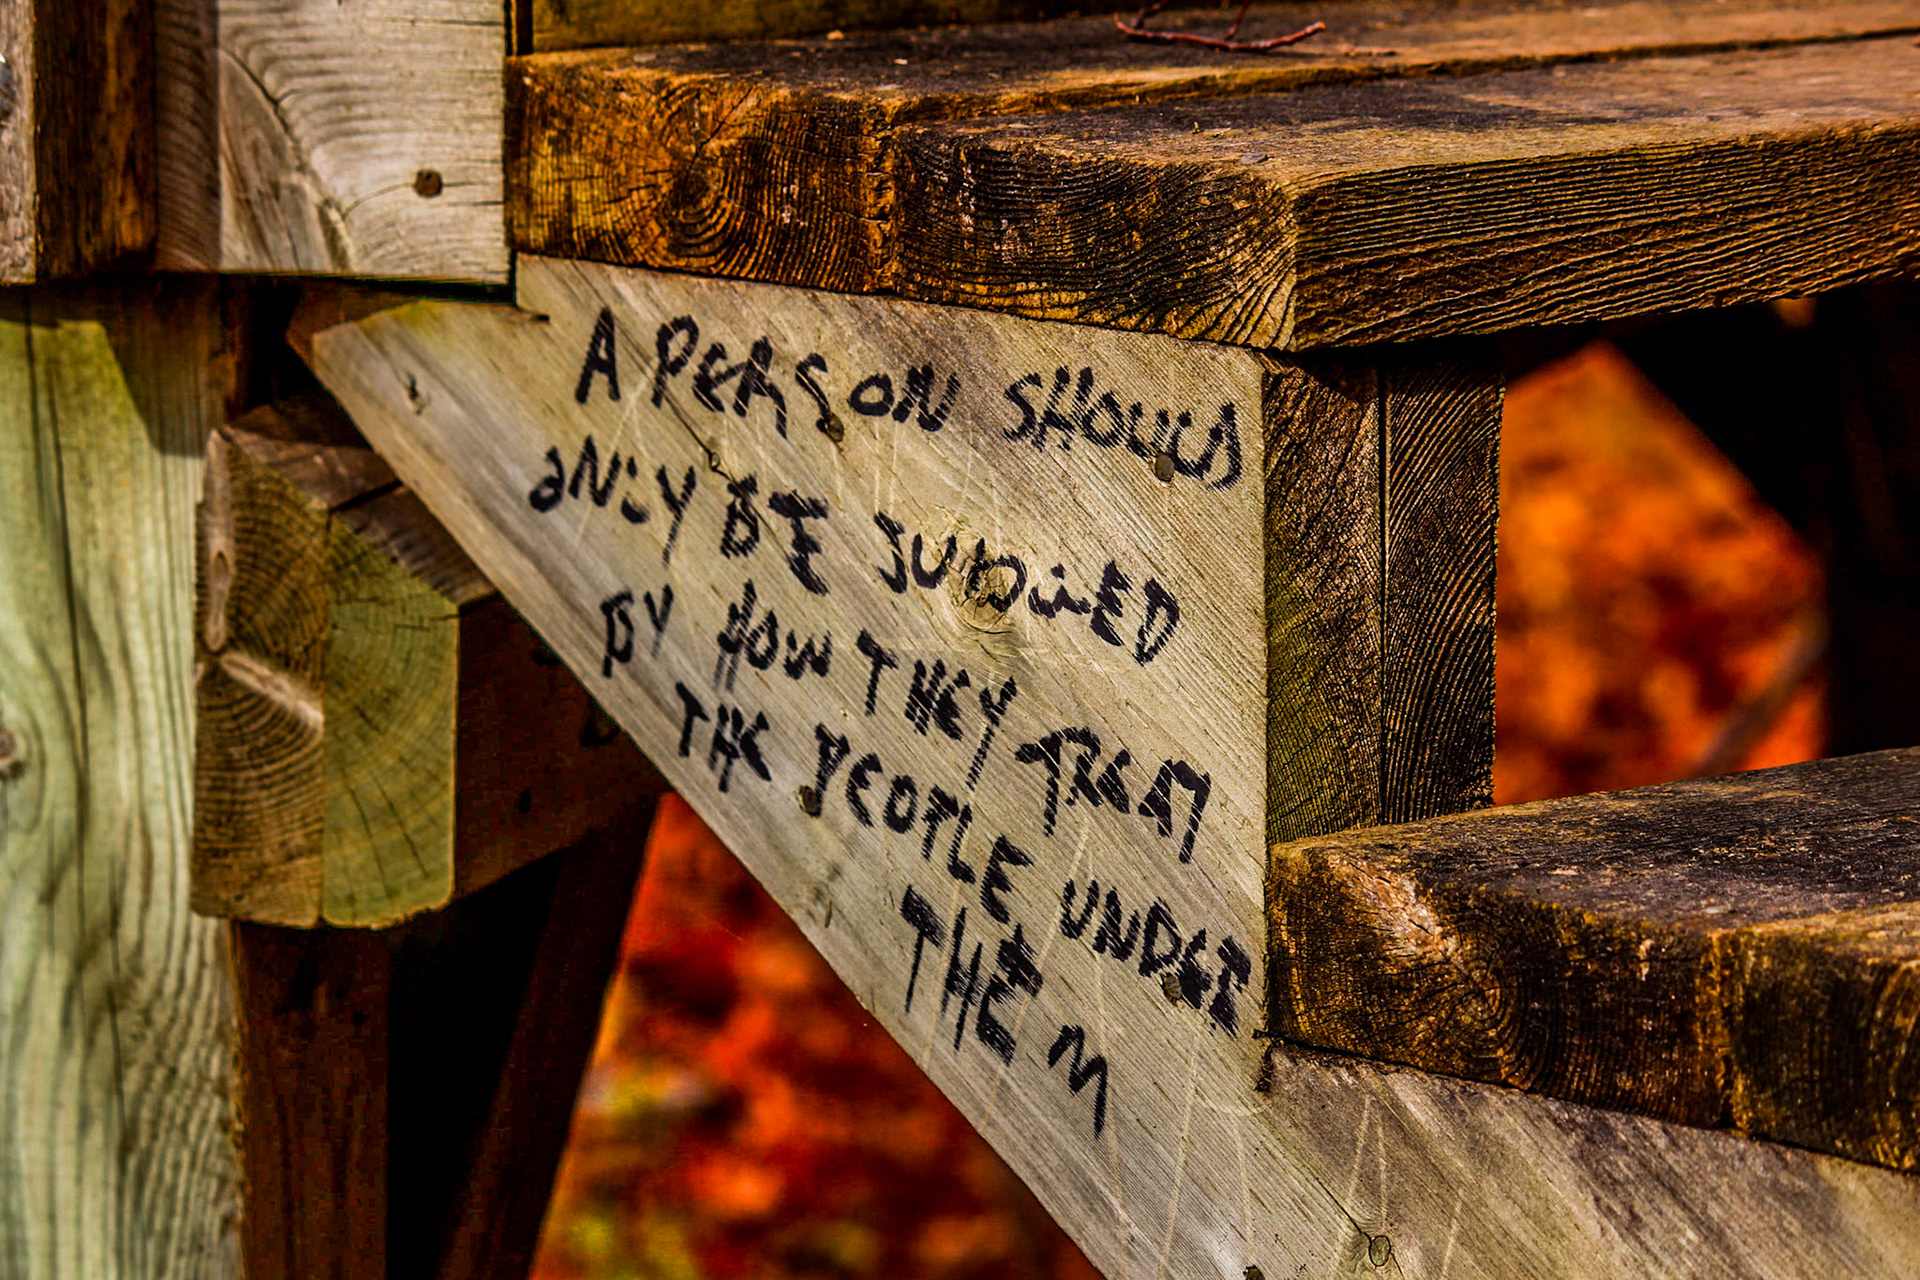 A PERSON SHOULD
ONLY BE JUDGED
BY HOW THEY TREAT
THE PEOPLE UNDER
THEM